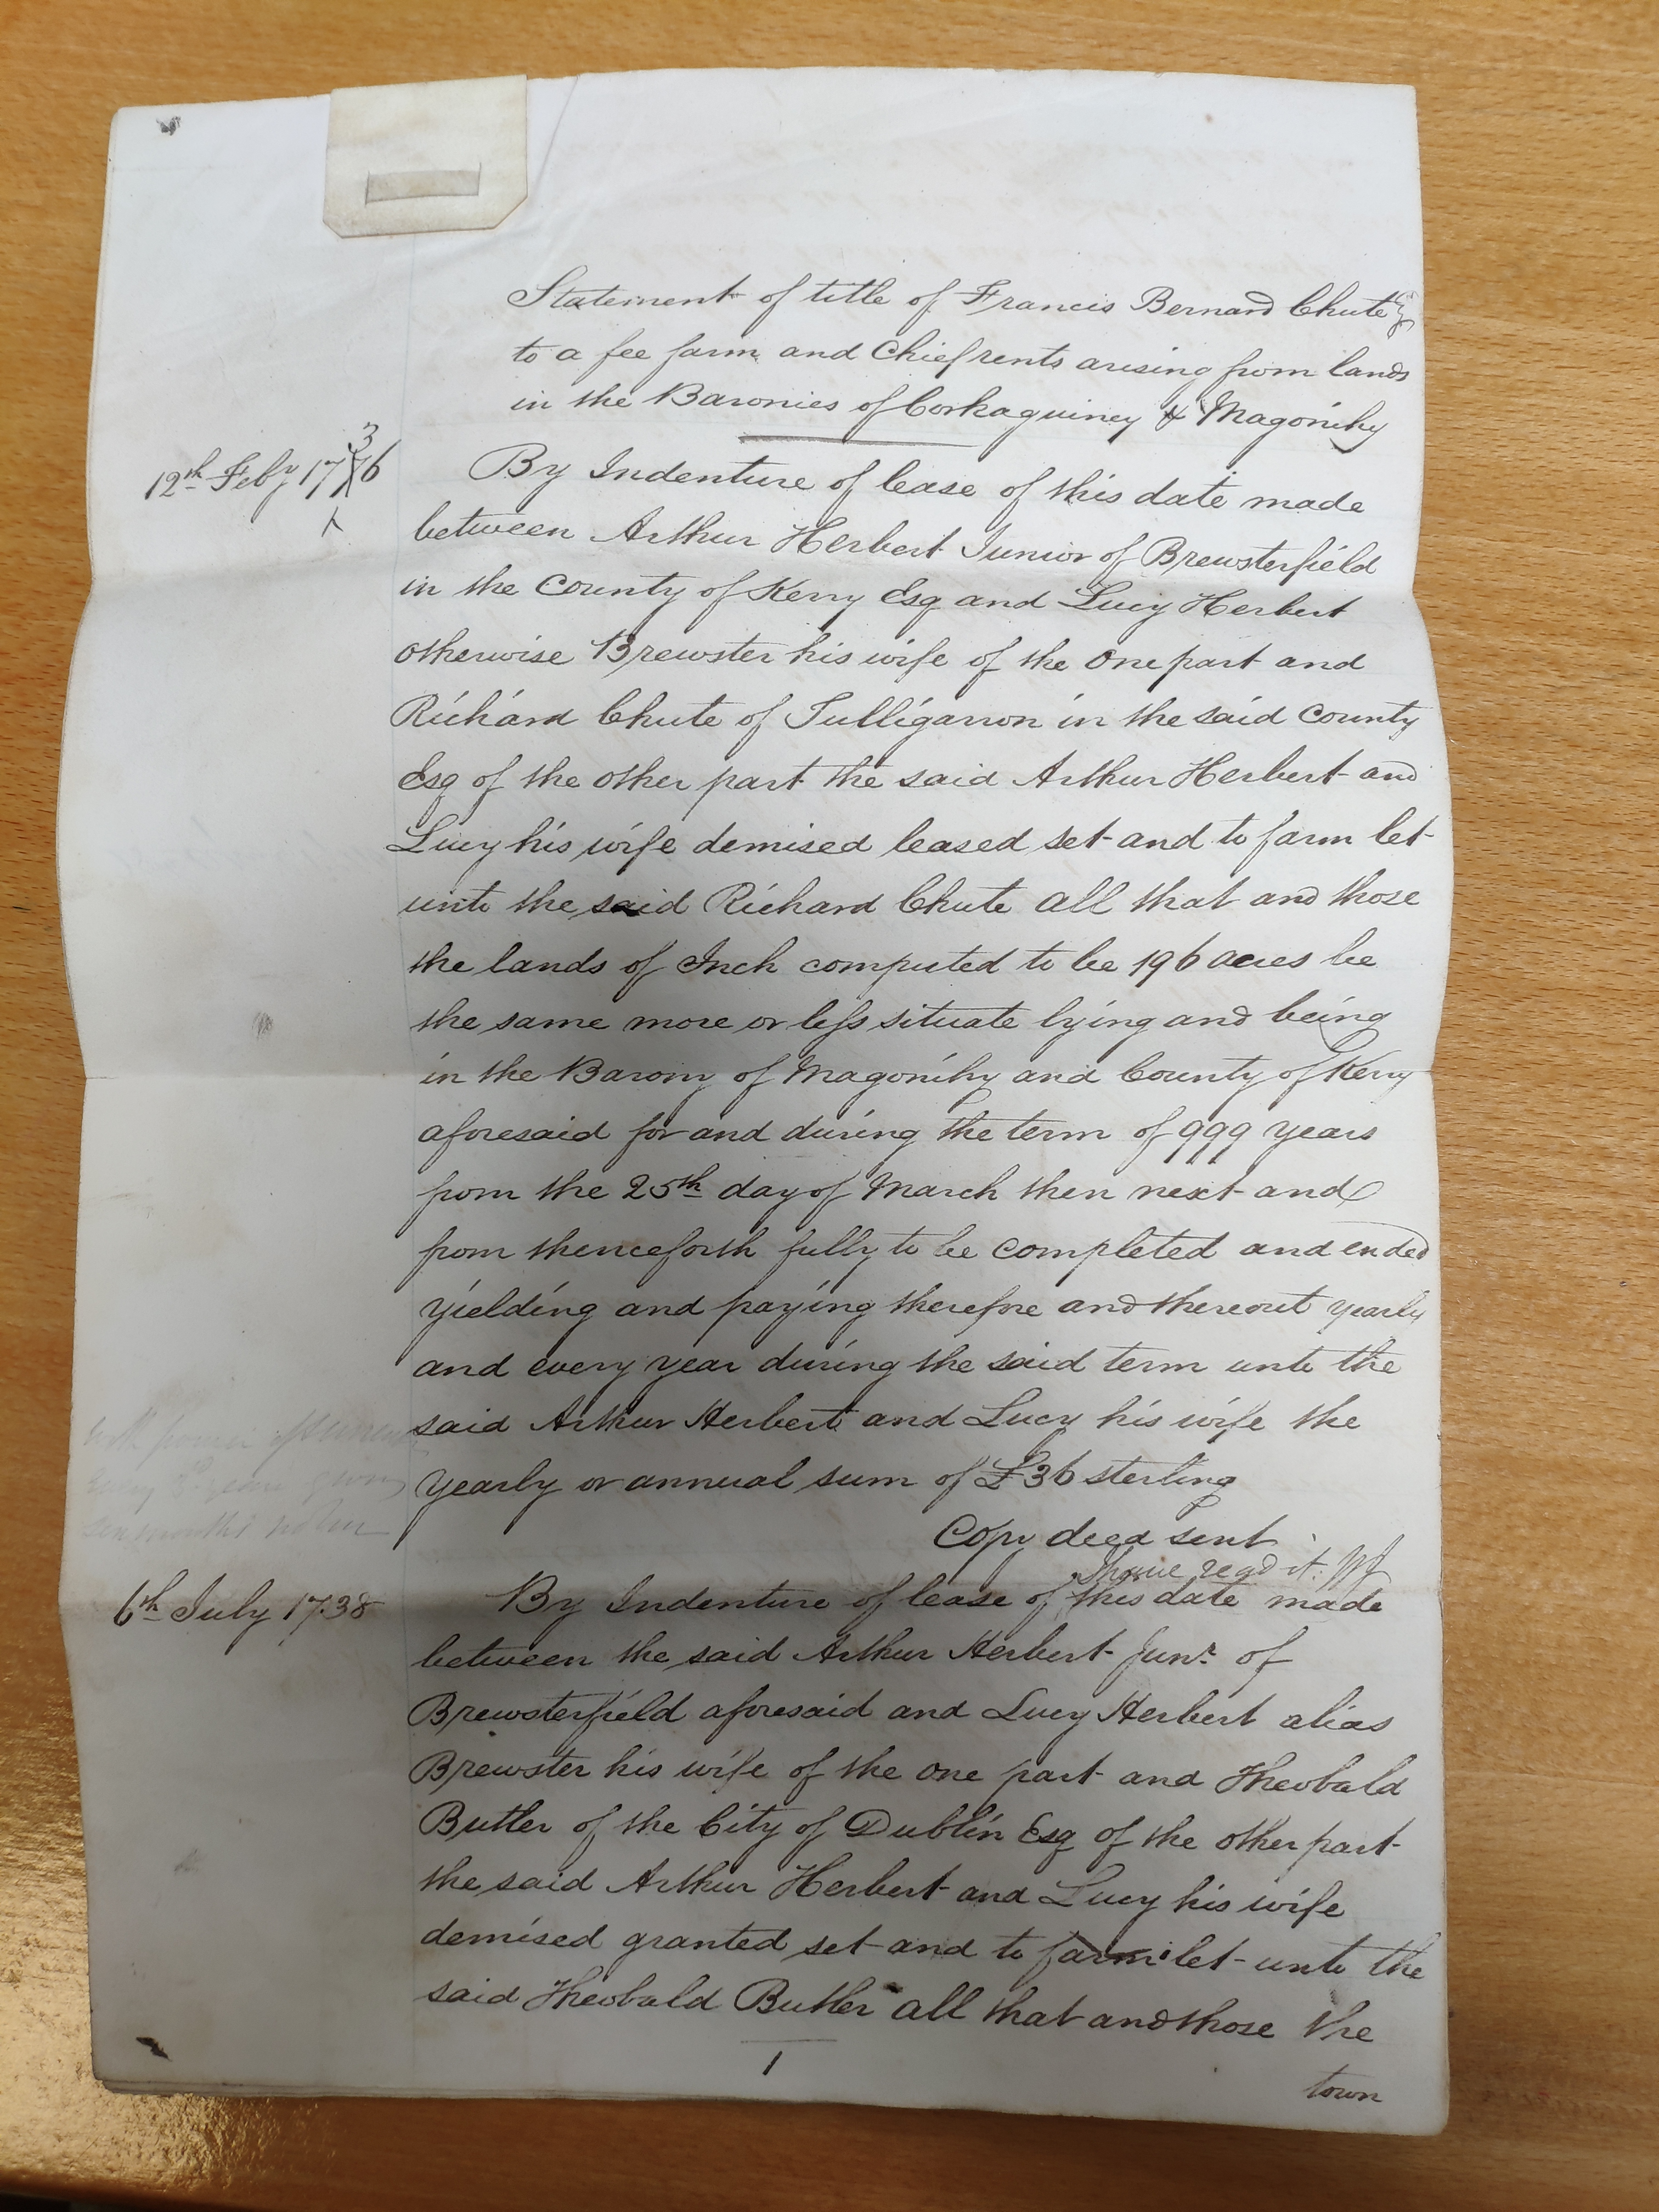 Statement of title of Francis Bernard Chute Esq
to a fee farm and Chief rents arising from lands
in the Baronies of Corkaguiney & Magonihy
12th Feby 1736
By Indenture of lease of this date made
between Arthur Herbert Junior of Brewsterfield
in the County of Kerry Esq and Lucy Herbert
otherwise Brewster his wife of the one part and
Richard Chute of Tulligaron in the said County
Esq of the other part the said Arthur Herbert and
Lucy his wife demised leased set and to farm let
unto the said Richard Chute all that and those
the lands of Inch computed to be 196 acres be
the same more or less situate lying and being
in the Barony of Magonihy and County of Kerry
aforesaid for and during the term of 999 years
from the 25th day of March then next and
from thenceforth fully to be completed and ended
yielding and paying therefore and thereout yearly
and every year during the said term unto the
said Arthur Herbert and Lucy his wife the
yearly or annual sum of £36 sterling
with power
every years giving
six months notice
Copy deed sent
I have read it.
6th July 1738
By Indenture of lease of this date made
between the said Arthur Herbert Junr. of
Brewsterfield aforesaid and Lucy Herbert alias
Brewster his wife of the one part and Theobald
Butler of the City of Dublin Esq of the other part
the said Arthur Herbert and Lucy his wife
demised granted set and to farm let unto the
said Theobald Butler all that and those the
1
town